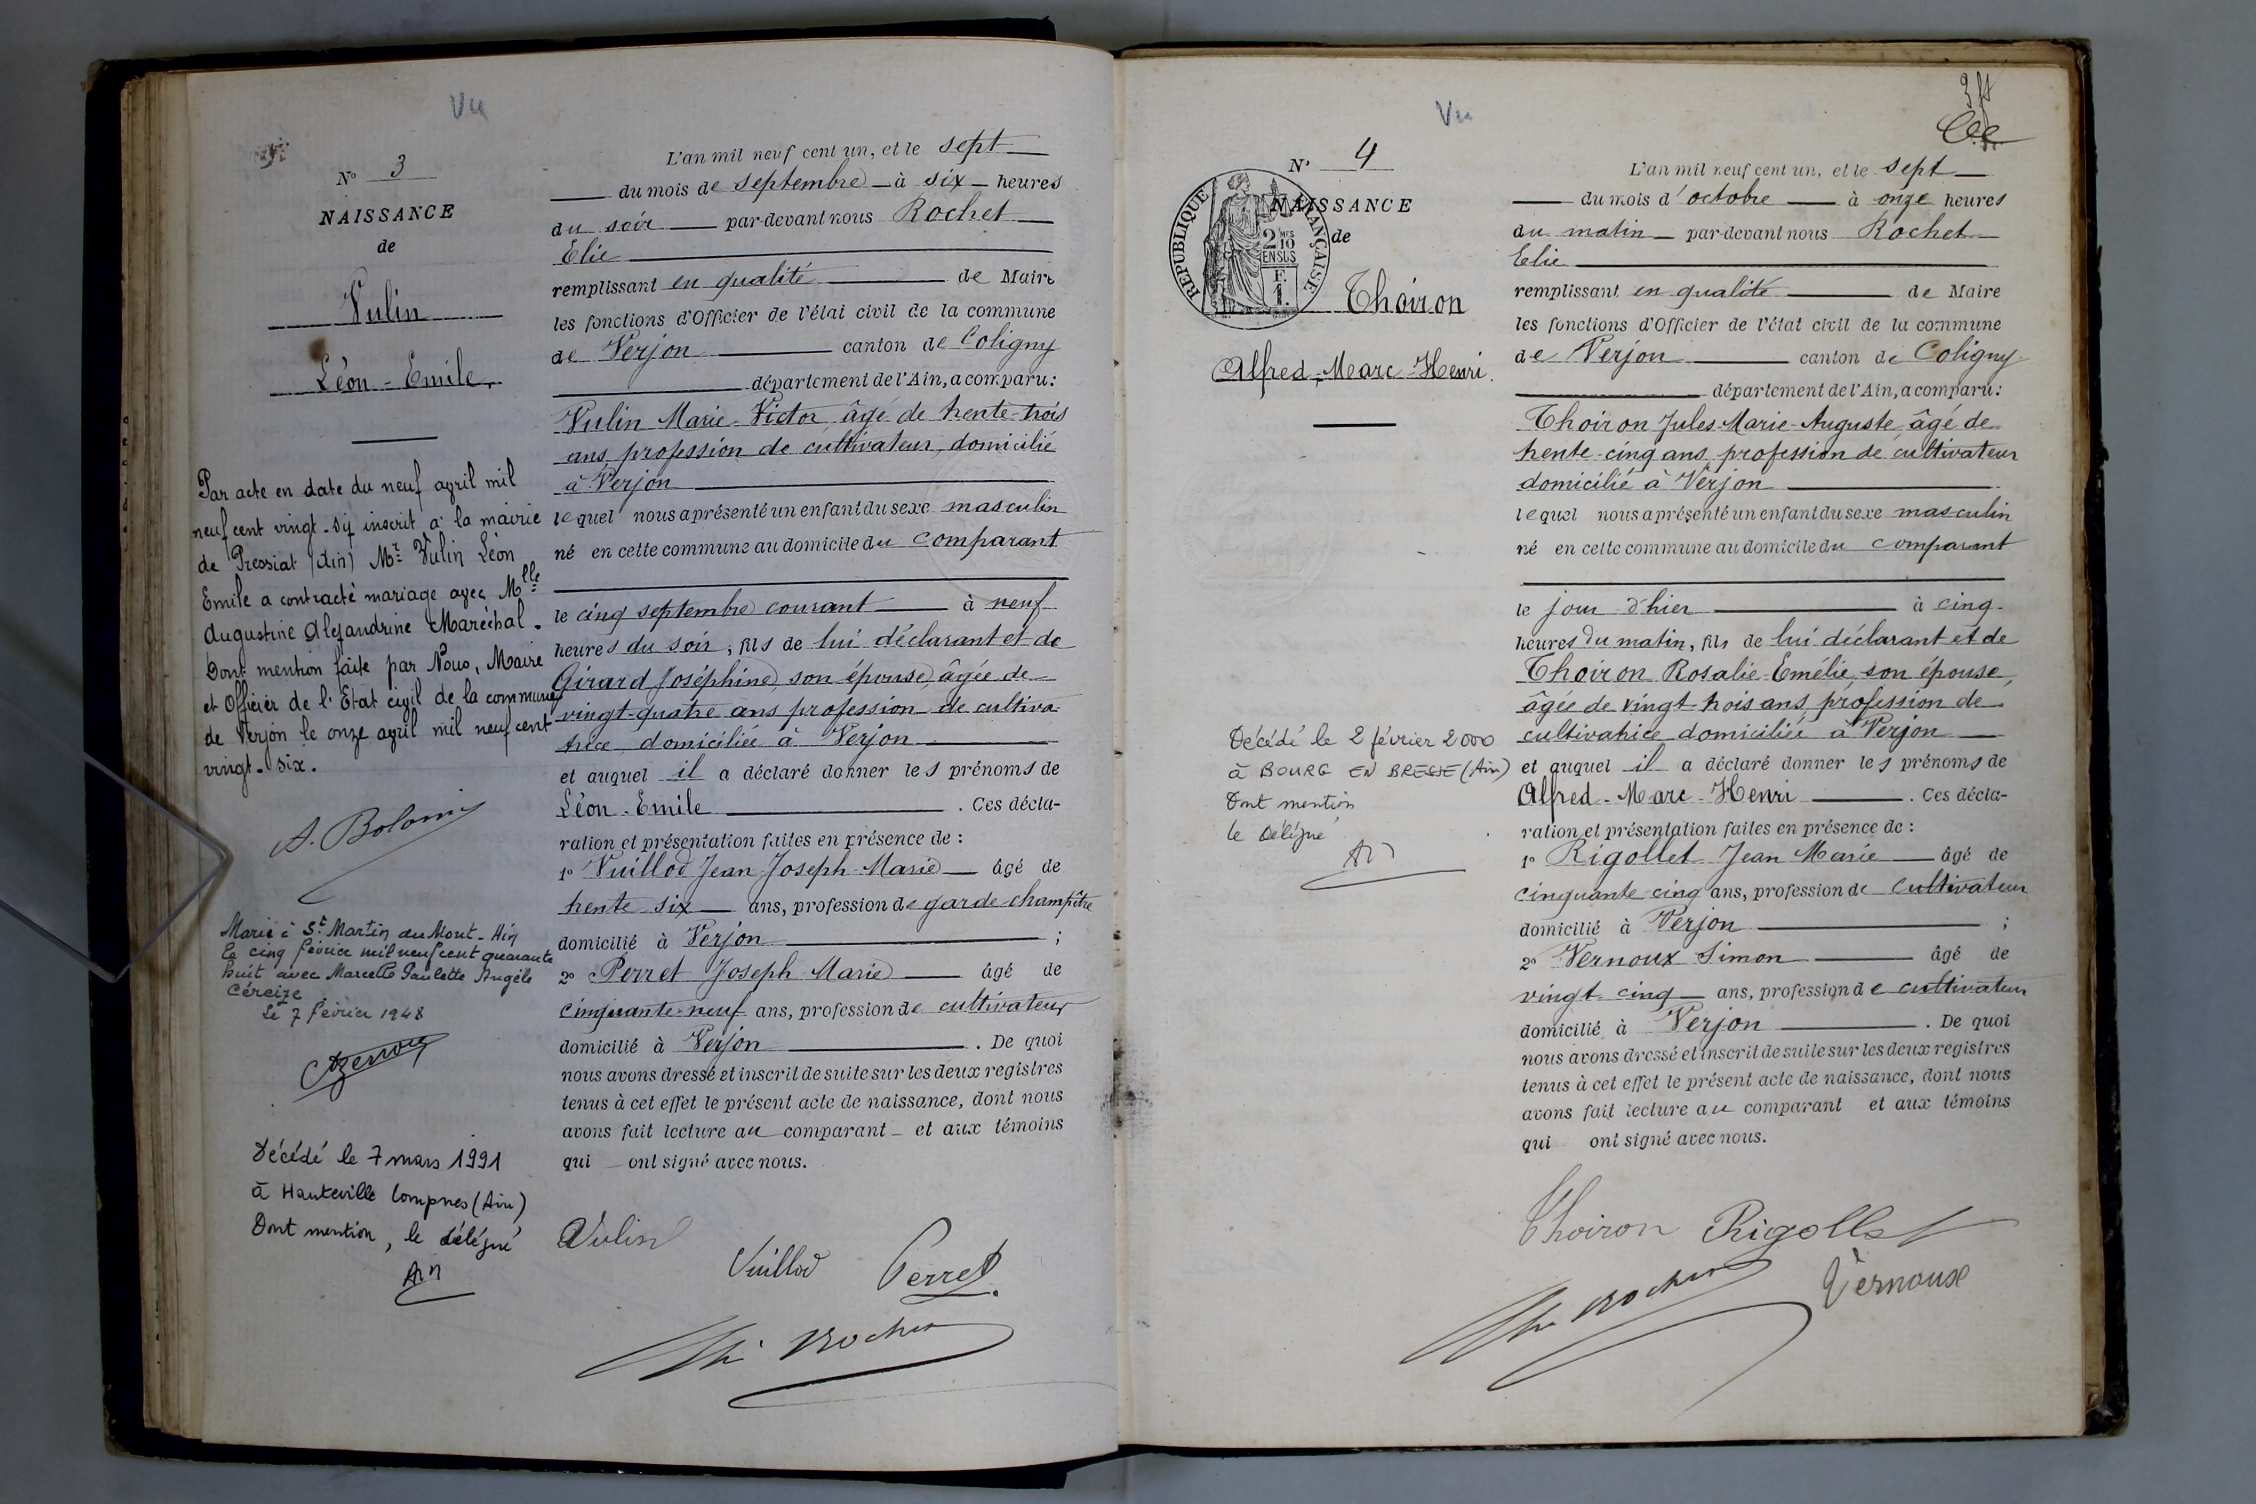 Vu
N° 3
NAISSANCE
de
Vulin
Léon-Emile
Par acte en date du neuf avril mil
neuf cent vingt-six inscrit à la mairie
de Pressiat (Ain) Mr Vulin Léon
Emile a contracté mariage avec Mlle
Augustine Alexandrine Maréchal.
Dont mention faite par Nous, Maire
et Officier de l'Etat civil de la commune
de Verjon le onze avril mil neuf cent
vingt-six.
Marié à St Martin du Mont-Ain
le cinq février mil neuf cent quarante
huit avec Marcelle Paulette Angèle
Céreize
Le 7 février 1948
Décédé le 7 mars 1991
à Hauteville Lompnes (Ain)
Dont mention, le délégué
L'an mil neuf cent un, et le sept
du mois de septembre à six heures
du soir par-devant nous Rochet
Elie
remplissant en qualité de Maire
les fonctions d'Officier de l'état civil de la commune
de Verjon canton de Coligny
département de l'Ain, a comparu:
Vulin Marie-Victor âgé de trente-trois
ans, profession de cultivateur, domicilié
à Verjon
lequel nous a présenté un enfant du sexe masculin
né en cette commune au domicile du comparant
le cinq septembre courant à neuf
heures du soir, fils de lui déclarant et de
Girard Joséphine, son épouse, âgée de
vingt-quatre ans profession de cultiva-
trice domiciliée à Verjon
et auquel il a déclaré donner les prénoms de
Léon-Emile. Ces décla-
ration et présentation faites en présence de:
1° Vuillod Jean-Joseph-Marie âgé de
trente-six ans, profession de garde-champêtre
domicilié à Verjon;
2° Perret Joseph-Marie âgé de
cinquante-neuf ans, profession de cultivateur
domicilié à Verjon. De quoi
nous avons dressé et inscrit de suite sur les deux registres
tenus à cet effet le présent acte de naissance, dont nous
avons fait lecture au comparant et aux témoins
qui ont signé avec nous.
Vulin
Vuillod Perret
Rochet
Vu
N° 4
NAISSANCE
de
RÉPUBLIQUE FRANÇAISE
2 MES
10
EN SUS
F.
1.
Thoiron
Alfred-Marc-Henri.
Décédé le 2 février 2000
à BOURG EN BRESSE (Ain)
Dont mention
le délégué
L'an mil neuf cent un, et le sept
du mois d'octobre à onze heures
du matin par-devant nous Rochet
Elie
remplissant en qualité de Maire
les fonctions d'Officier de l'état civil de la commune
de Verjon canton de Coligny
département de l'Ain, a comparu:
Thoiron Jules-Marie-Auguste âgé de
trente-cinq ans, profession de cultivateur
domicilié à Verjon
lequel nous a présenté un enfant du sexe masculin
né en cette commune au domicile du comparant
le jour d'hier à cinq
heures du matin, fils de lui déclarant et de
Thoiron Rosalie-Emélie, son épouse,
âgée de vingt-trois ans, profession de
cultivatrice domiciliée à Verjon
et auquel il a déclaré donner les prénoms de
Alfred-Marc-Henri. Ces décla-
ration et présentation faites en présence de:
1° Rigollet Jean Marie âgé de
cinquante-cinq ans, profession de cultivateur
domicilié à Verjon;
2° Vernoux Simon âgé de
vingt-cinq ans, profession de cultivateur
domicilié à Verjon. De quoi
nous avons dressé et inscrit de suite sur les deux registres
tenus à cet effet le présent acte de naissance, dont nous
avons fait lecture au comparant et aux témoins
qui ont signé avec nous.
Thoiron Rigollet
Rochet Vernoux